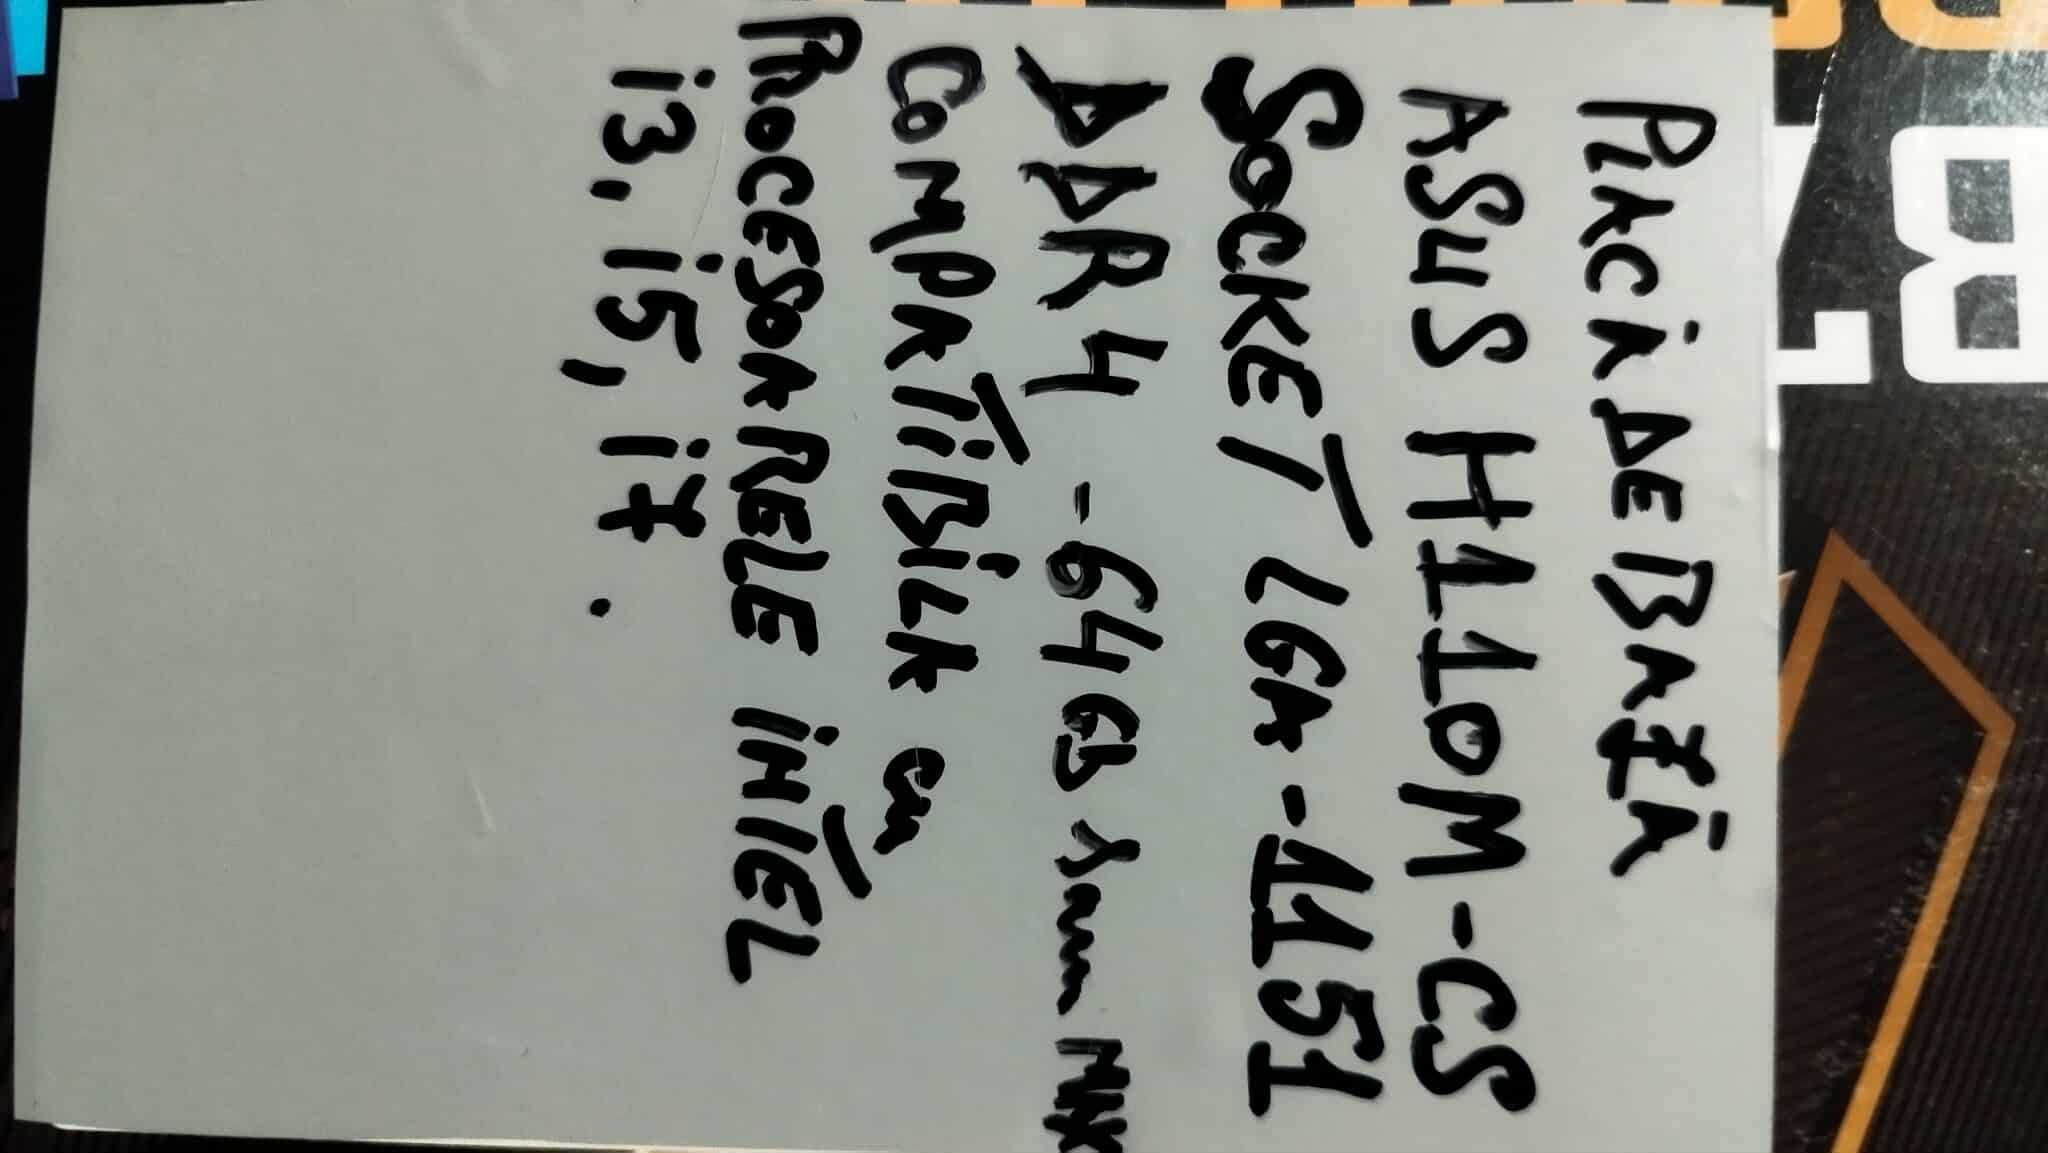 PLACĂ DE BAZĂ
ASUS H110M-CS
SOCKET LGA-1151
DDR4 -64GB ram MAX
COMPATIBILA cu
PROCESOARELE iNTEL
i3, i5, i7.